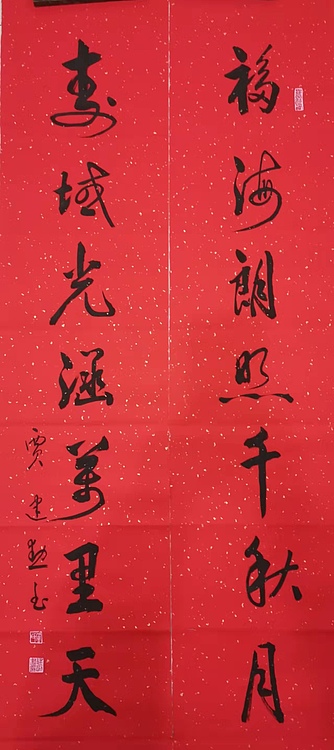 福海朗照千秋月
寿域光涵萬里天
贾建勋书